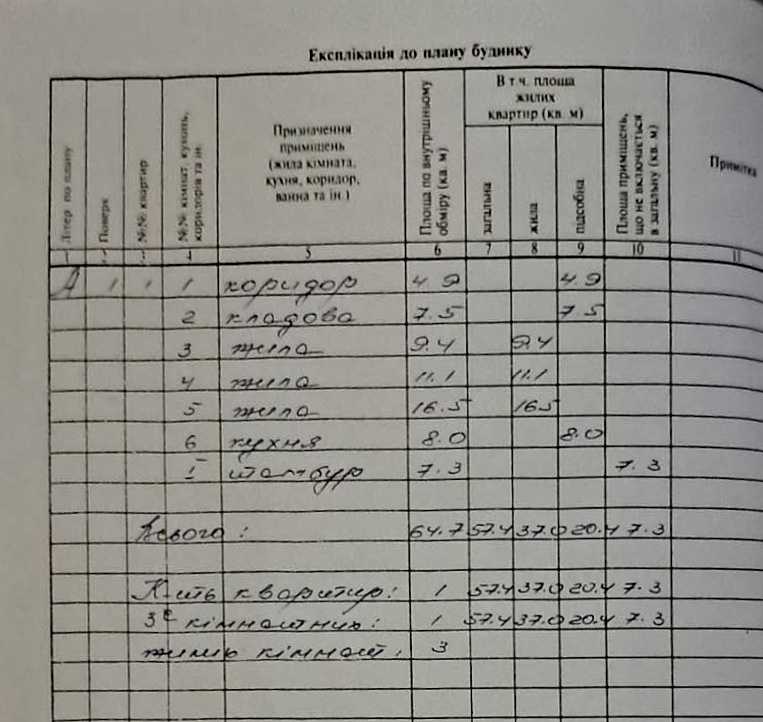 Експлікація до плану будинку
Літер по плану | Поверх | №№ квартир | №№ кімнат, кухонь, коридорів та ін. | Призначення приміщень (жила кімната, кухня, коридор, ванна та ін.) | Площа по внутрішньому обміру (кв. м) | В т.ч. площа жилих квартир (кв. м) | загальна | жила | підсобна | Площа приміщень, що не включається в загальну (кв. м) | Примітка
1 | 2 | 3 | 4 | 5 | 6 | 7 | 8 | 9 | 10 | 11
А 1 1 1 коридор 4.9 4.9
2 кладова 7.5 7.5
3 жила 9.4 9.4
4 жила 11.1 11.1
5 жила 16.5 16.5
6 кухня 8.0 8.0
I тамбур 7.3 7.3
Всього: 64.7 57.4 37.0 20.4 7.3
К-ть квартир: 1 57.4 37.0 20.4 7.3
3х кімнатних: 1 57.4 37.0 20.4 7.3
жилих кімнат: 3